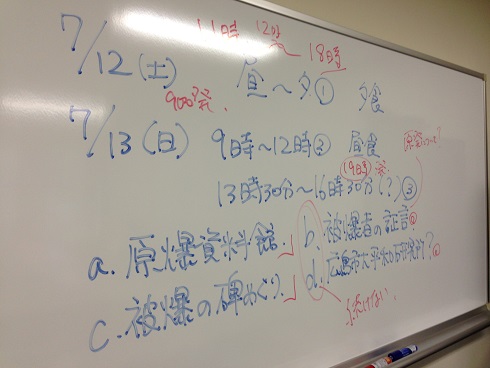 11時 12時〜18時
7/12(土) 昼〜夕① 夕食
9:00発.
7/13(日) 9時〜12時② 昼食
19時
13時30分〜16時30分(?)③
a. 原爆資料館 b. 被爆者の証言
c. 被爆の碑めぐり d. 広島市大平和研究所?
続けない.